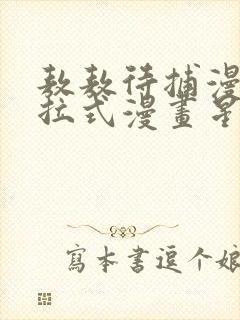 敖敖待捕漫
拉式漫畫星
寫本書逗个娘